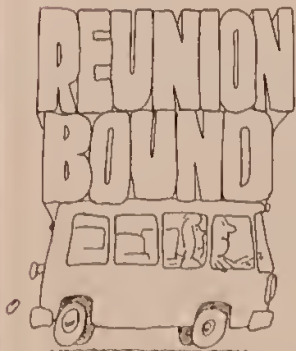 REUNION
BOUND